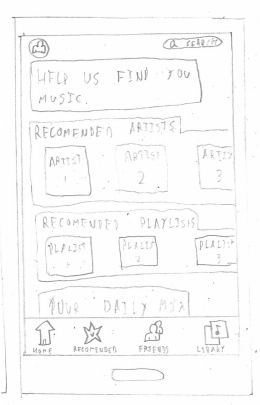 SEARCH
HELP US FIND YOU
MUSIC.
RECOMENDED ARTISTS
ARTIST
1
ARTIST
2
ARTIS
3
RECOMENDED PLAYLISTS
PLALIST
1
PLALIST
2
PLALIST
3
YOUR DAILY MIX
HOME
RECOMENDED
FRIENDS
LIBRARY